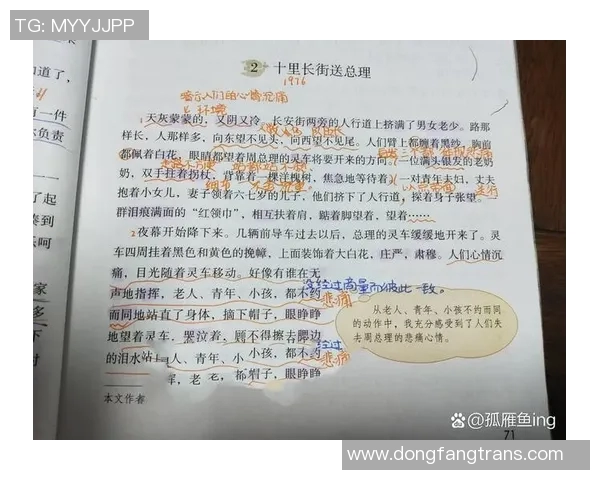 TG: MYYJJPP
道了，
2 十里长街送总理
1976
暗示人们的心情沉痛
环境
1天灰蒙蒙的，又阴又冷。长安街两旁的人行道上挤满了男女老少。路那
样长，人那样多，向东望不见头，向西望不见尾。人们臂上都缠着黑纱，胸前
有一件
尔负责
都佩着白花，眼睛都望着周总理的灵车将要开来的方向。一位满头银发的老奶
奶，双手拄着拐杖，背靠着一棵洋槐树，焦急地等待着。一对青年夫妇，丈夫
抱着小女儿，妻子领着六七岁的儿子，他们挤下了人行道，探着身子张望。
群泪痕满面的“红领巾”，相互扶着肩，踮着脚望着，望着……
2夜幕开始降下来。几辆前导车过去以后，总理的灵车缓缓地开来了。灵
车四周挂着黑色和黄色的挽幛，上面装饰着大白花，庄严，肃穆。人们心情沉
痛，目光随着灵车移动。好像有谁在无
没经过商量而彼此一致。
声地指挥，老人、青年、小孩，都不约
悲痛
而同地站直了身体，摘下帽子，眼睁睁
地望着灵车，哭泣着，顾不得擦去腮边
经过
的泪水站 人、青年、小 小孩，都不约
悲痛
老 都 帽子，眼睁睁
从老人、青年、小孩不约而同
的动作中，我充分感受到了人们失
去周总理的悲痛心情。
本文作者
71
Bai百度 @孤雁鱼ing
www.dongfangtrans.com